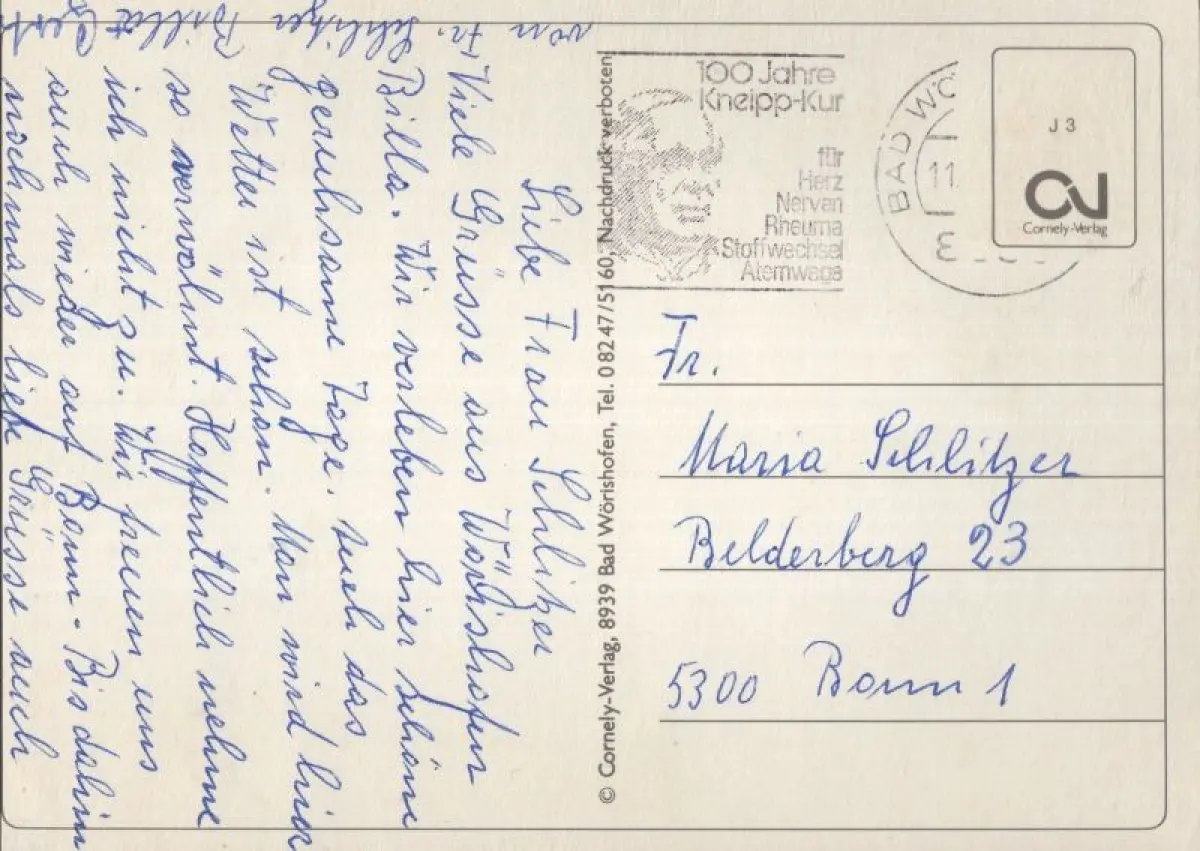 Liebe Frau Schlitzer
Viele Grüsse aus Wörishofen
Billa. Wir verleben hier schöne
geruhsame Tage. auch das
Wetter ist schön. Man wird hier
so verwöhnt. Hoffentlich nehme
ich nicht zu. Wir freuen uns
auch wieder auf Bonn. Bis dahin
nochmals liebe Grüsse auch
von Fr. Schlitzer Billa
© Cornely-Verlag, 8939 Bad Wörishofen, Tel. 08247/5160, Nachdruck verboten
100 Jahre
Kneipp-Kur
für
Herz
Nerven
Rheuma
Stoffwechsel
Atemwege
BAD WÖ
11.
J 3
Cornely-Verlag
Fr.
Maria Schlitzer
Belderberg 23
5300 Bonn 1